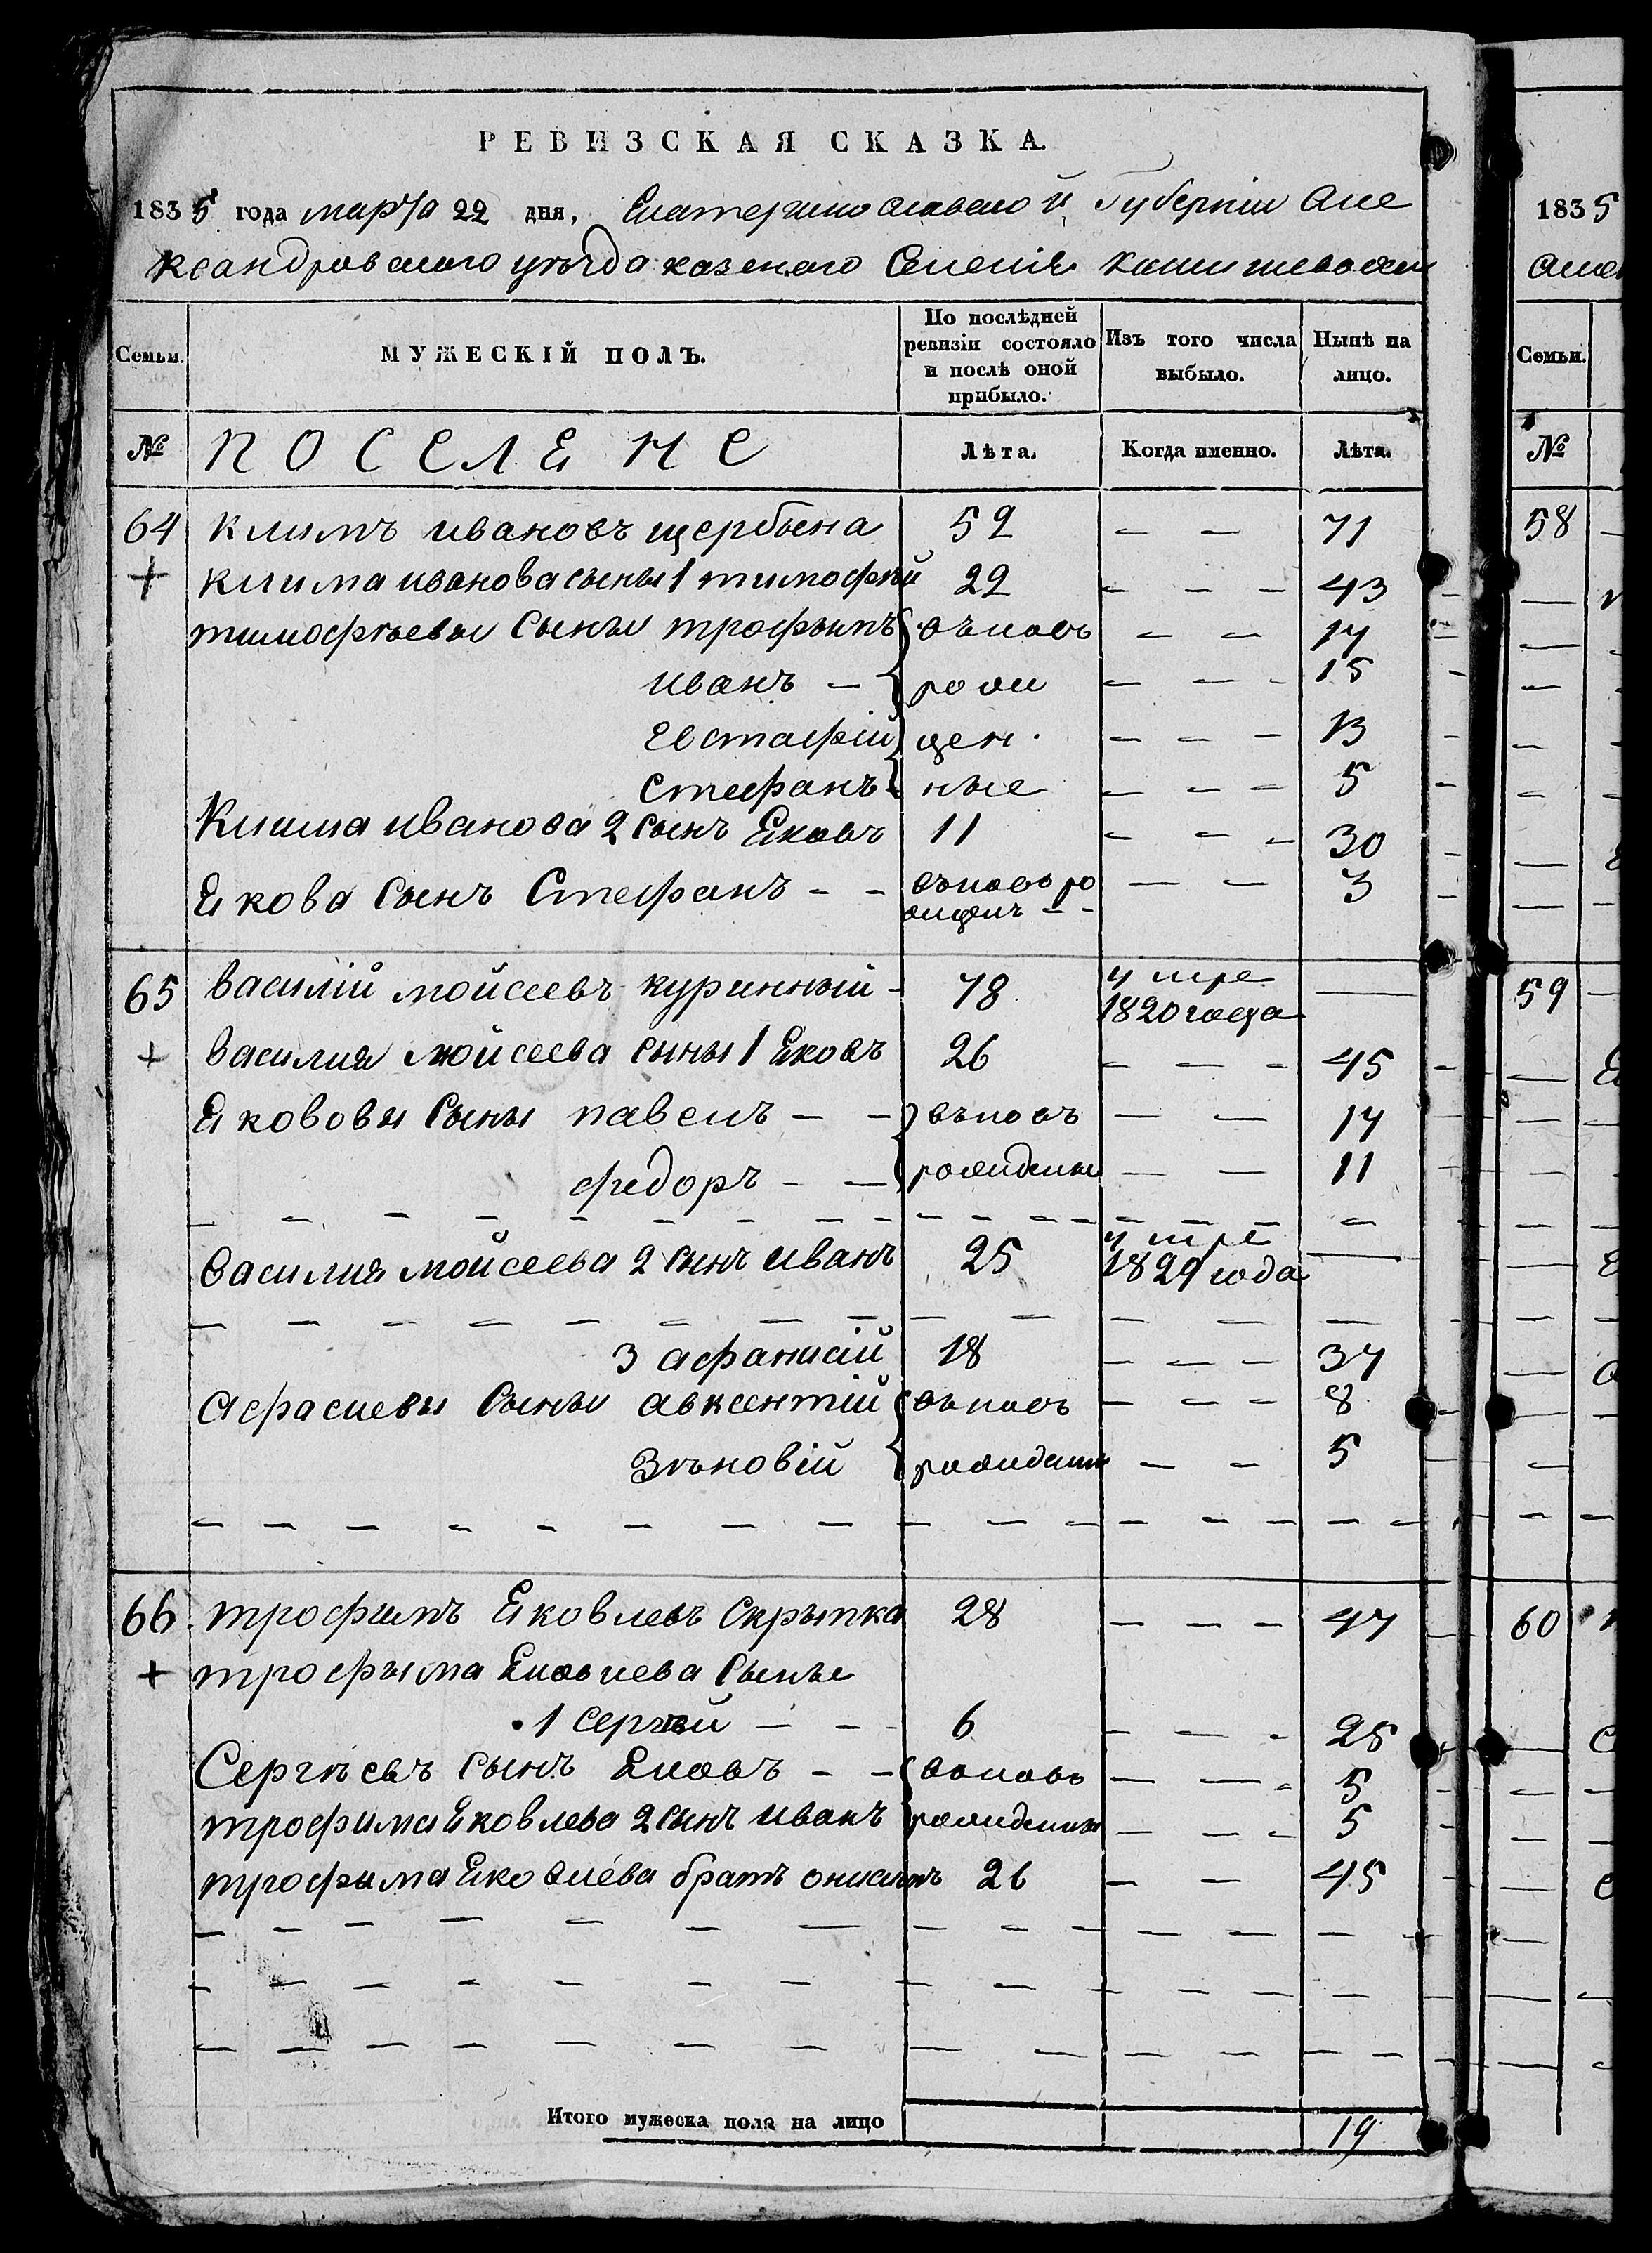 РЕВИЗСКАЯ СКАЗКА.
1835 года марта 22 дня, Екатеринославской Губерніи Але
ксандровского уѣзда казеного Селенія
Семьи. МУЖЕСКІЙ ПОЛЪ. По послѣдней ревизіи состояло и послѣ оной прибыло. Изъ того числа выбыло. Нынѣ на лицо.
№ ПОСЕЛЕНЕ Лѣта. Когда именно. Лѣта.
64 климъ ивановъ щербына 52 — — 71
+ клима иванова сыны 1 тимофѣй 22 — — — 43
тимофѣевы Сыны трофымъ въновь — — 17
иванъ — рожи — — — 15
евстафій ден — — — 13
стефанъ ные — — — 5
Клима иванова 2 сынъ Ековъ 11 — — — 30
Екова Сынъ Стефанъ — — въновь ро — — 3
жденъ — —
65 василій мойсеевъ куринный — 78 умре —
1820 года
+ василия мойсеева сыны 1 Ековъ 26 — — — 45
Екововы Сыны павелъ — — въновь — — 17
федоръ — — рожидены — — 11
василия мойсеева 2 сынъ иванъ 25 умре —
1829 года
3 афанисій 18 — — — 37
Афрасиевы Сыны авксентій въновь — — — 8
Зѣновій рожидены — — 5
66 трофимъ Ековлевъ Скрыпка 28 — — — 47
+ трофыма Ековлева Сыны
1 Сергѣй — — 6 — — — 25
Сергѣевъ сынъ Ековъ — — вновь — — — 5
трофима Ековлева 2 сынъ иванъ рожидены — — — 5
трофыма Ековлева братъ 26 — — 45
Итого мужеска пола на лицо 19
1835
Семьи.
№
58
59
60